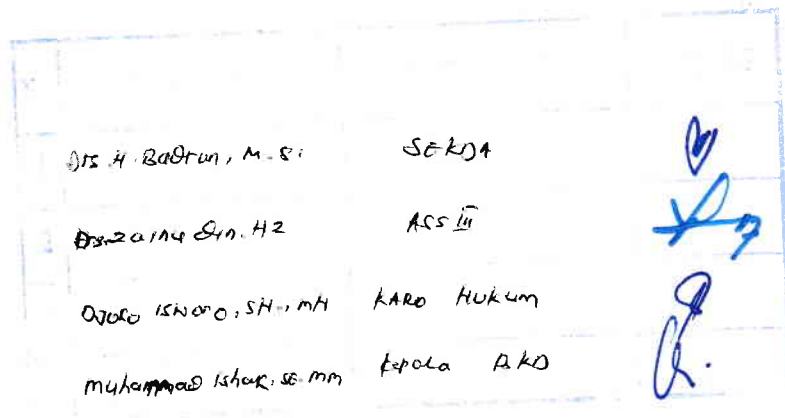 Drs H. Badrun, M. Si SEKDA
Drs. Zainuddin. HZ ASS III
Isworo, SH., MH KARO HUKUM
Muhammad Ishak, SE. MM Kepala BKD